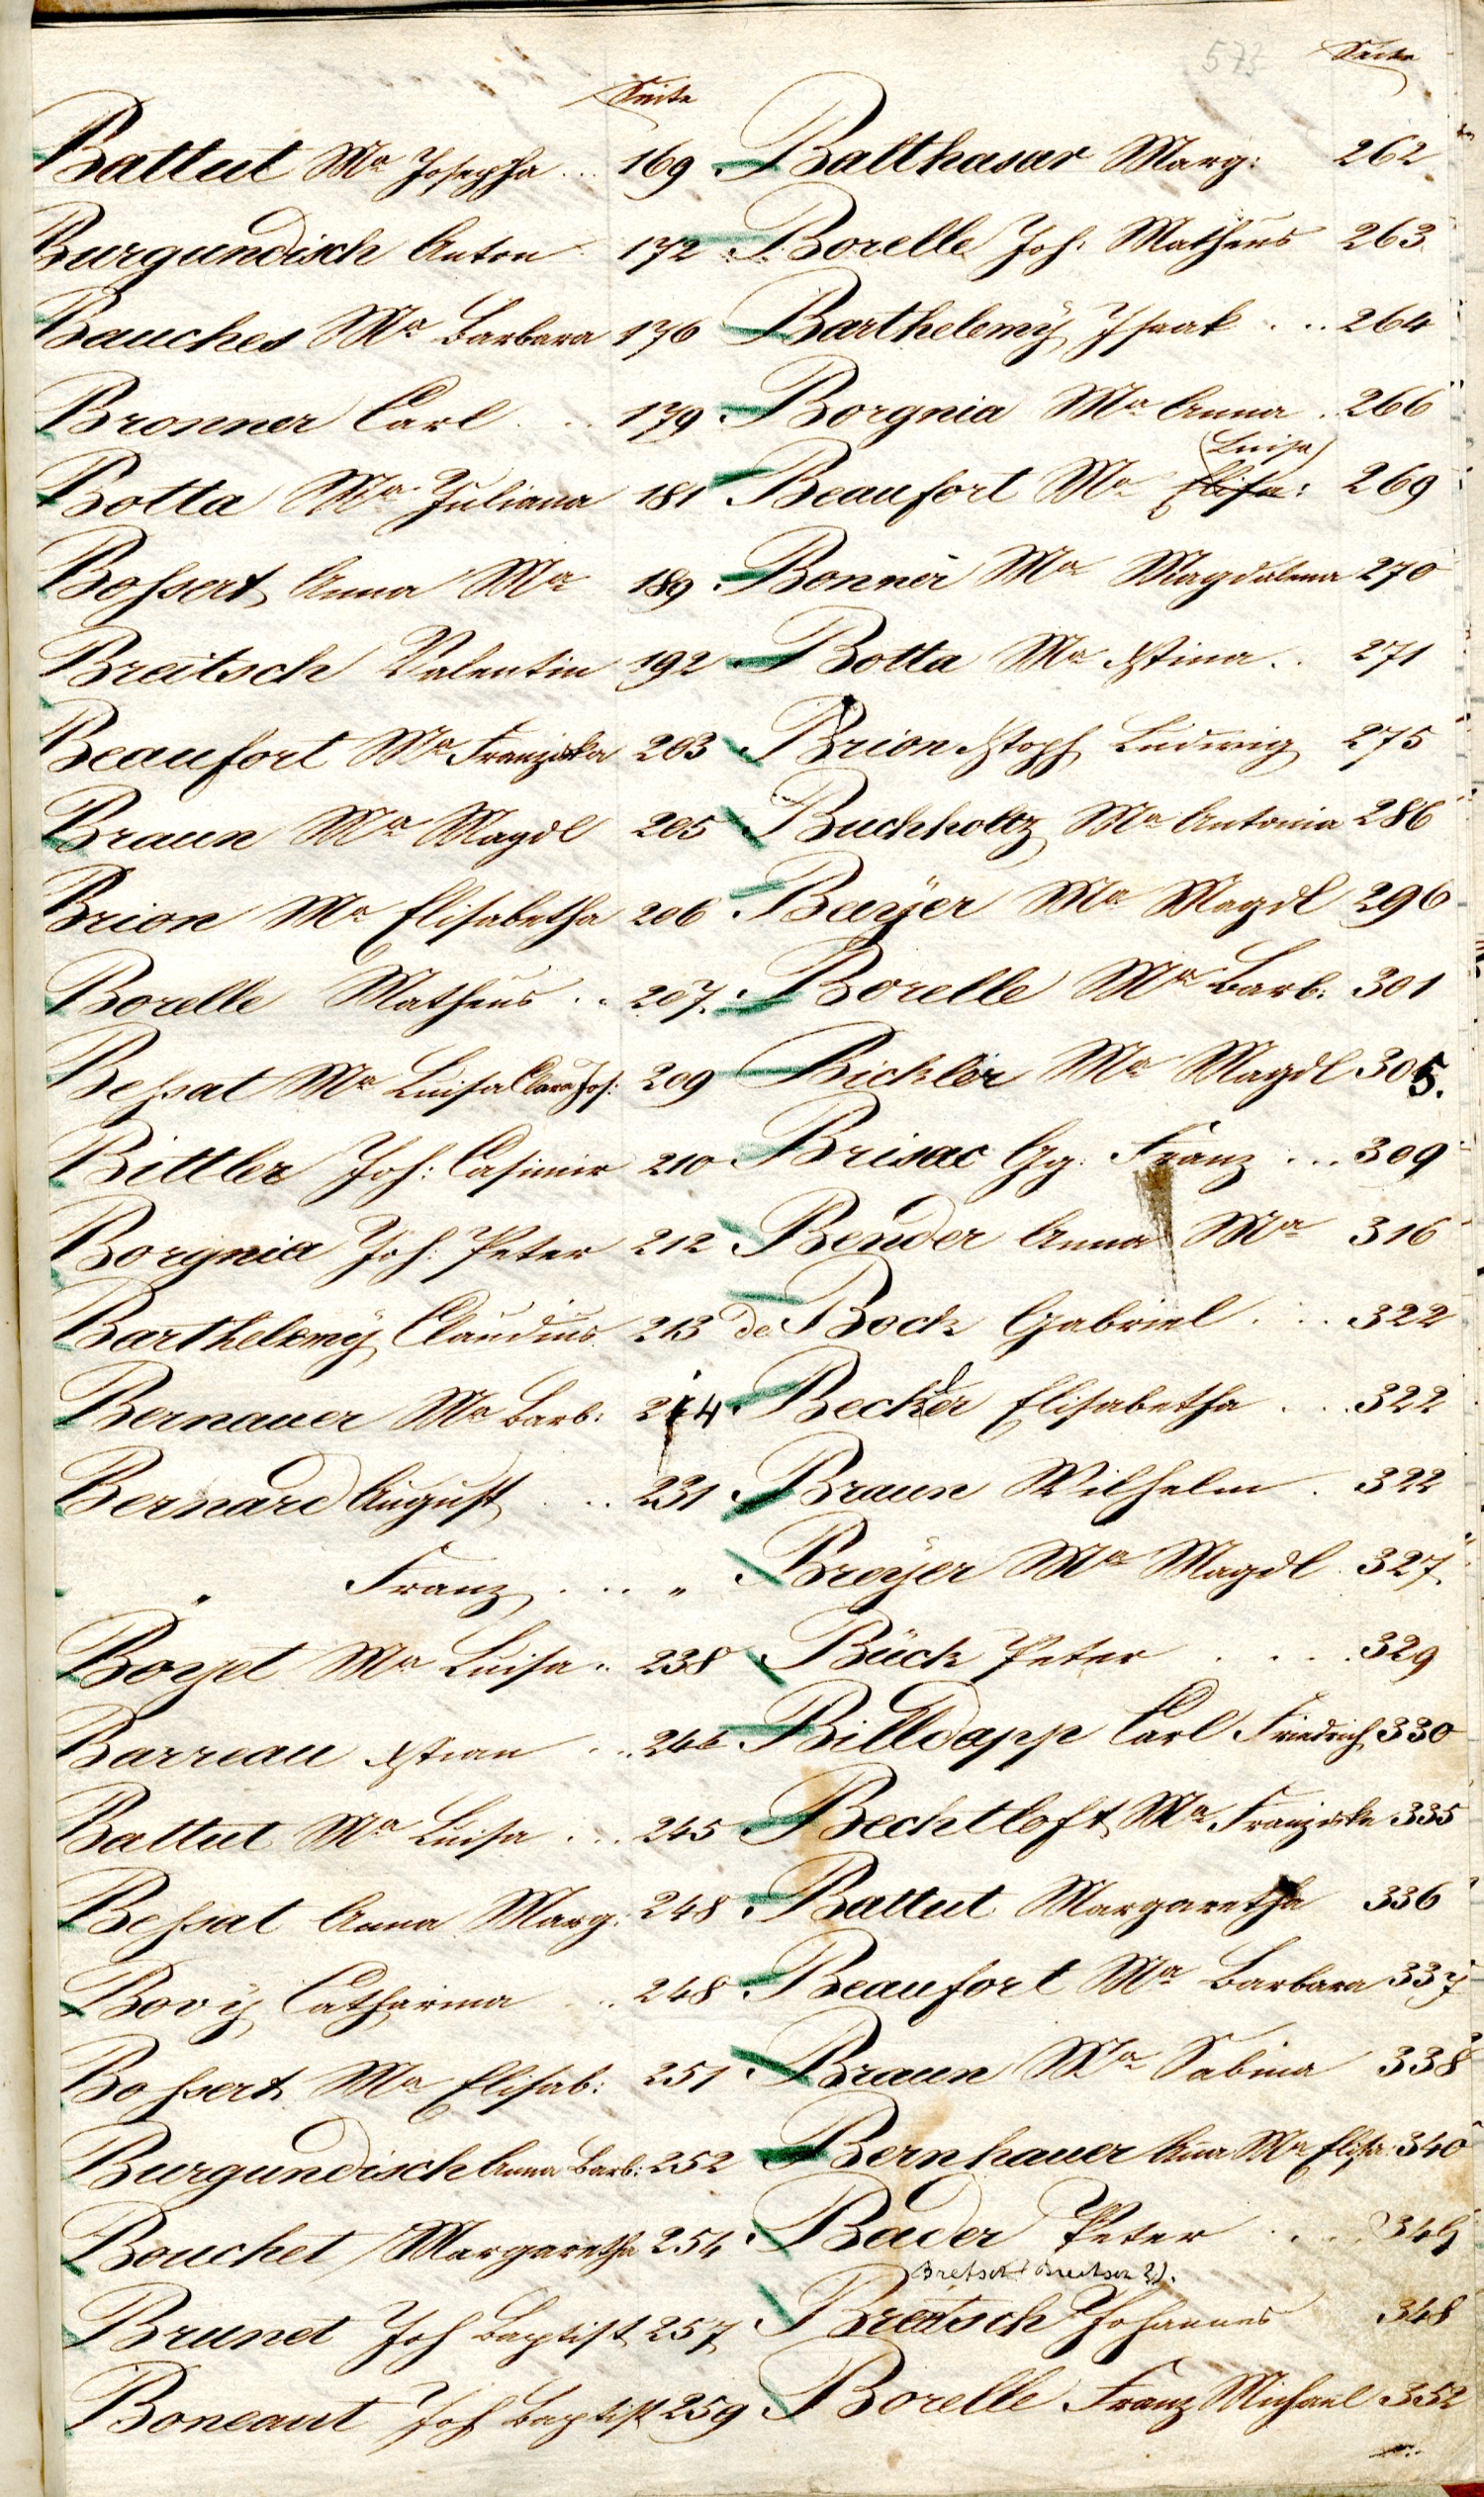 573
Seite
Battut Ma Josepha ... 169
Burgundisch Anton 172
Bauches Ma Barbara 176
Bronner Carl . . . 179
Botta Ma Juliana 181
Boßert Anna Ma 189
Breitsch Valentin 192
Beaufort Ma Franziska 203
Braun Ma Magdl 205
Brion Ma Elisabetha 206
Borelle Matheus .. 207.
Beßat Ma Luisa Clara Jos: 209
Bittler Joh: Casimir 210
Borgnia Joh: Peter 212
Barthelemÿ Claudius 213
Bernauer Ma Barb: 214
Bernard August . .. 231
" Franz . . .. "
Boyet Ma Luisa .. 238
Barreau Xtian ... 246
Battut Ma Luisa ... 245
Beßat Anna Marg. 248
Bovÿ Catharina .. 248
Boßert Ma Elisab: 251
Burgundisch Anna Barb: 252
Bouchet Margaretha 254
Brunet Joh Baptist 257
Boneaut Joh Baptist 259
Seite
Balthasar Marg: 262
Borelle Joh: Matheus 263
Barthelemÿ Isaak . .. 264
Borgnia Ma Anna . 266
(Luisa)
Beaufort Ma Elisa: 269
Bonner Ma Magdalena 270
Botta Ma Xtina .. 271
Brion Xtoph Ludwig 275
Buchholtz Ma Antonia 286
Bayer Ma Magdl 296
Borelle Ma Barb: 301
Bickler Ma Magdl 305.
Brisac Gg. Franz ... 309
Bender Anna Ma 316
de Bock Gabriel . . .. 322
Becker Elisabetha . . . 322
Braun Wilhelm . 322
Breÿer Ma Magdl 327.
Bück Peter . . . . 329
Billdapp Carl Friedrich 330
Bechtloft Ma Franziska 335
Battut Margaretha 336
Beaufort Ma Barbara 337
Braun Ma Sabina 338
Bernhauer Ana Ma Elisa: 340
Bader Peter . . . 345
Bretsch (Breitsch ?).
Breitsch Johannes 348
Borelle Franz Michael 352